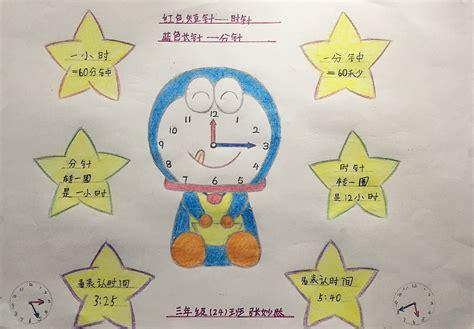 红色短针——时针
蓝色长针——分针
一小时
=60分钟
一分钟
=60秒
12
1
2
3
4
5
6
7
8
9
10
11
分针
转一圈
是一小时
时针
转一圈
是12小时
看表认时间
3:25
看表认时间
5:40
三年级(24)班 张妙